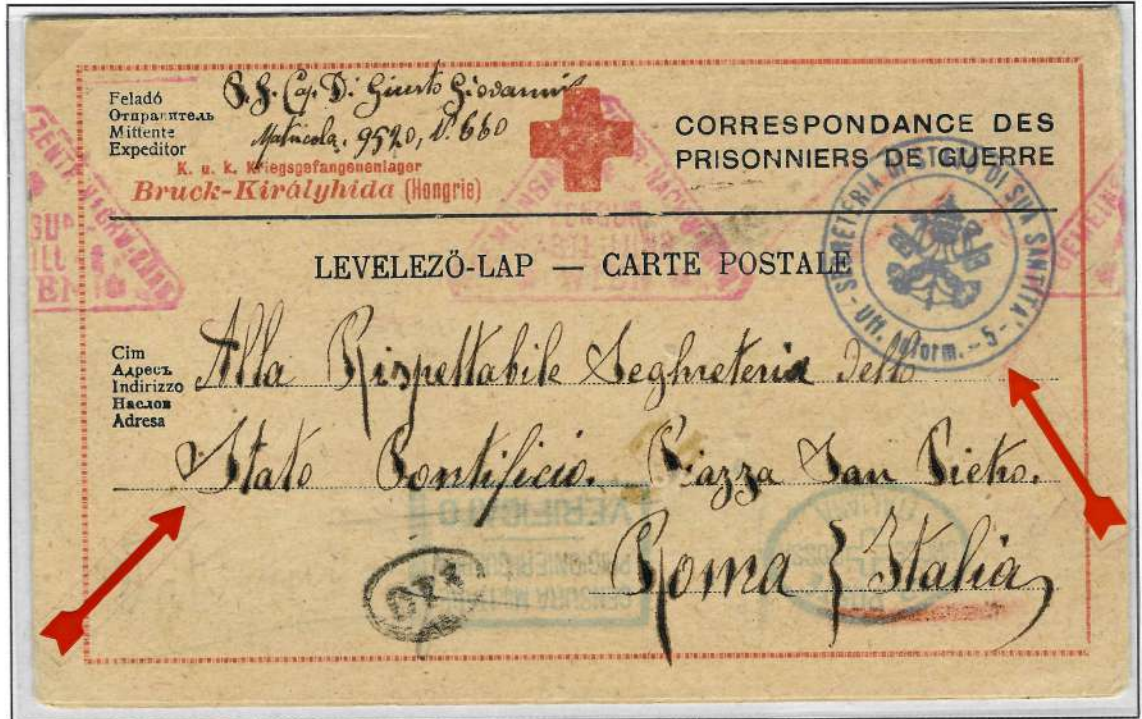 Feladó
Отправитель
Mittente
Expeditor
Cap. Di Giusto Giovanni
Matricola. 9520, N. 660
K. u. k. Kriegsgefangenenlager
Bruck-Királyhida (Hongrie)
CORRESPONDANCE DES
PRISONNIERS DE GUERRE
SEGRETERIA DI STATO DI SUA SANTITA'
- Uff. Inform. - 5 -
LEVELEZÖ-LAP — CARTE POSTALE
Cim
Адресъ
Indirizzo
Наслов
Adresa
Alla Rispettabile Seghreteria dello
Stato Pontificio. Piazza San Pietro.
Roma } Italia